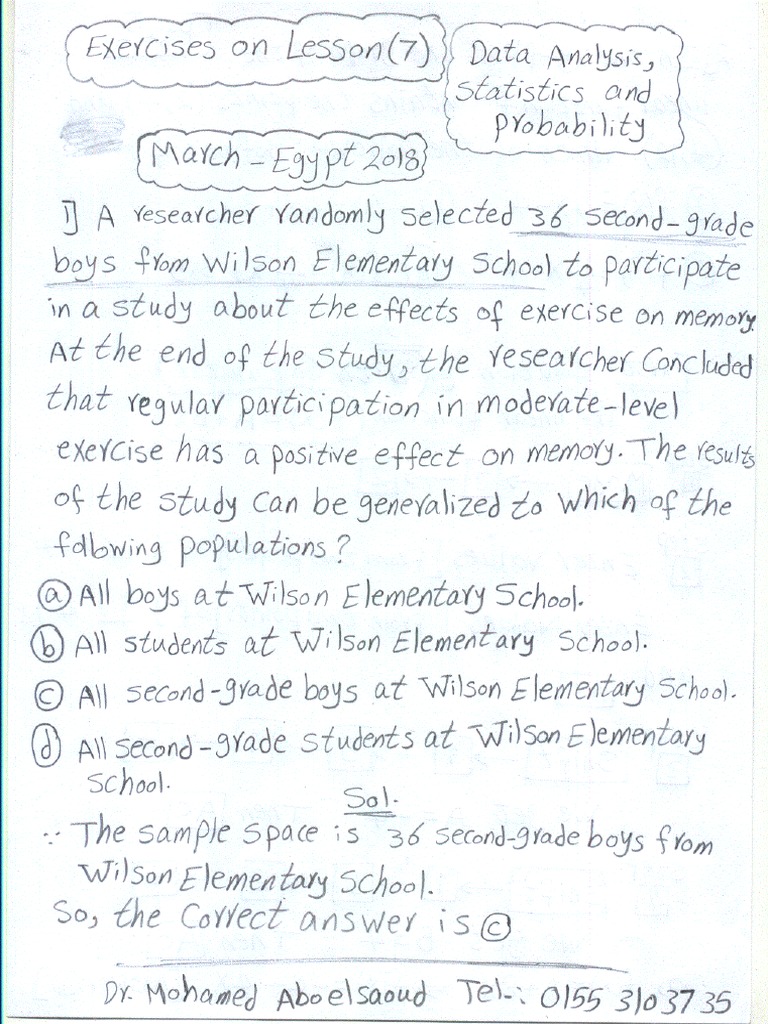 Exercises on Lesson(7)
Data Analysis,
statistics and
probability
March - Egypt 2018
1] A researcher randomly selected 36 second-grade
boys from Wilson Elementary School to participate
in a study about the effects of exercise on memory.
At the end of the study, the researcher concluded
that regular participation in moderate-level
exercise has a positive effect on memory. The results
of the study can be generalized to which of the
following populations?
ⓐ All boys at Wilson Elementary School.
ⓑ All students at Wilson Elementary School.
ⓒ All second-grade boys at Wilson Elementary School.
ⓓ All second-grade students at Wilson Elementary
school.
Sol.
∵ The sample space is 36 second-grade boys from
Wilson Elementary School.
So, the correct answer is ⓒ
Dr. Mohamed Aboelsaoud Tel.: 0155 310 37 35